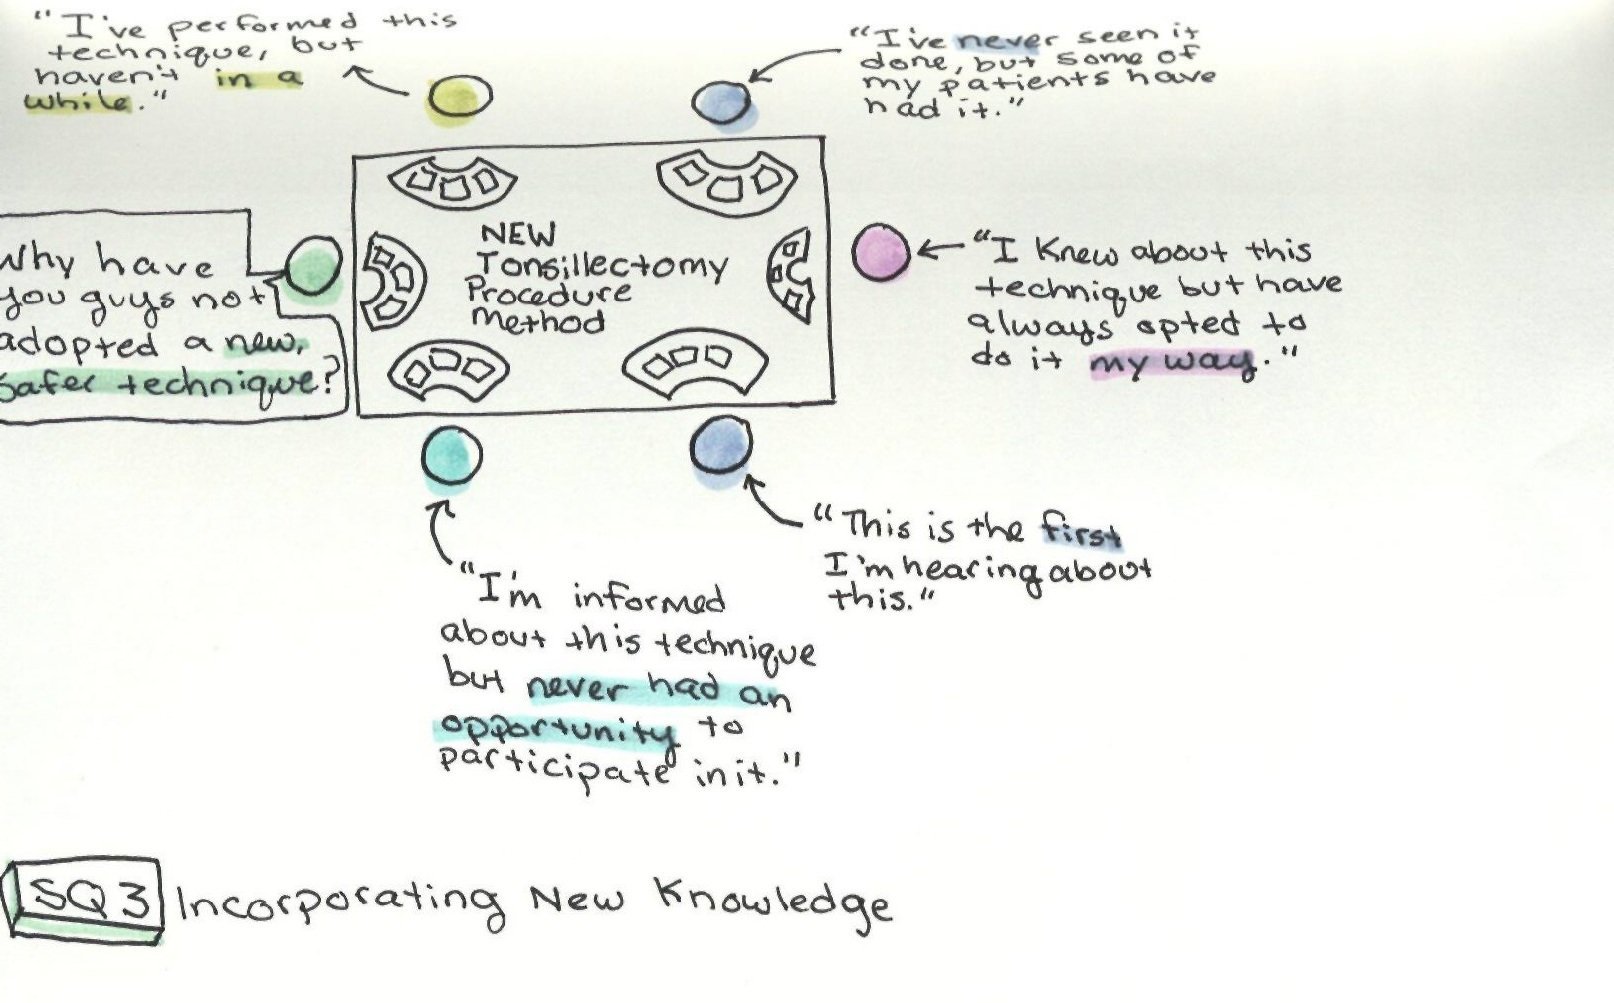 "I've performed this
technique, but
haven't in a
while."
"I've never seen it
done, but some of
my patients have
had it."
Why have
you guys not
adopted a new,
safer technique?
NEW
Tonsillectomy
Procedure
Method
"I Knew about this
technique but have
always opted to
do it my way."
"This is the first
I'm hearing about
this."
"I'm informed
about this technique
but never had an
opportunity to
participate in it."
SQ3 Incorporating New Knowledge